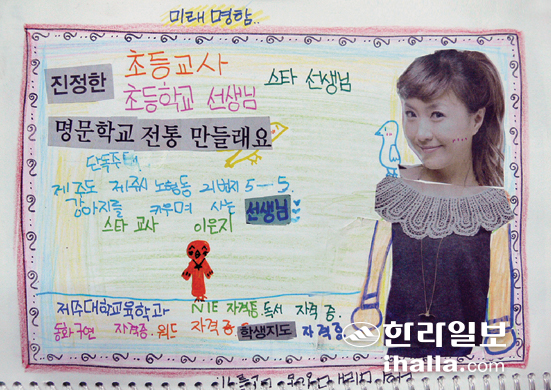 미래 명함..
진정한 초등교사 스타 선생님
초등학교 선생님
명문학교 전통 만들래요
단독주택
제주도 제주시 노형동 2번지 5-5.
강아지를 키우며 사는 선생님
스타 교사 이은지
제주대학교육학과 NIE 자격증. 독서 자격증.
동화구연 자격증. 워드 자격증 학생지도 자격증
한라일보
ihalla.com